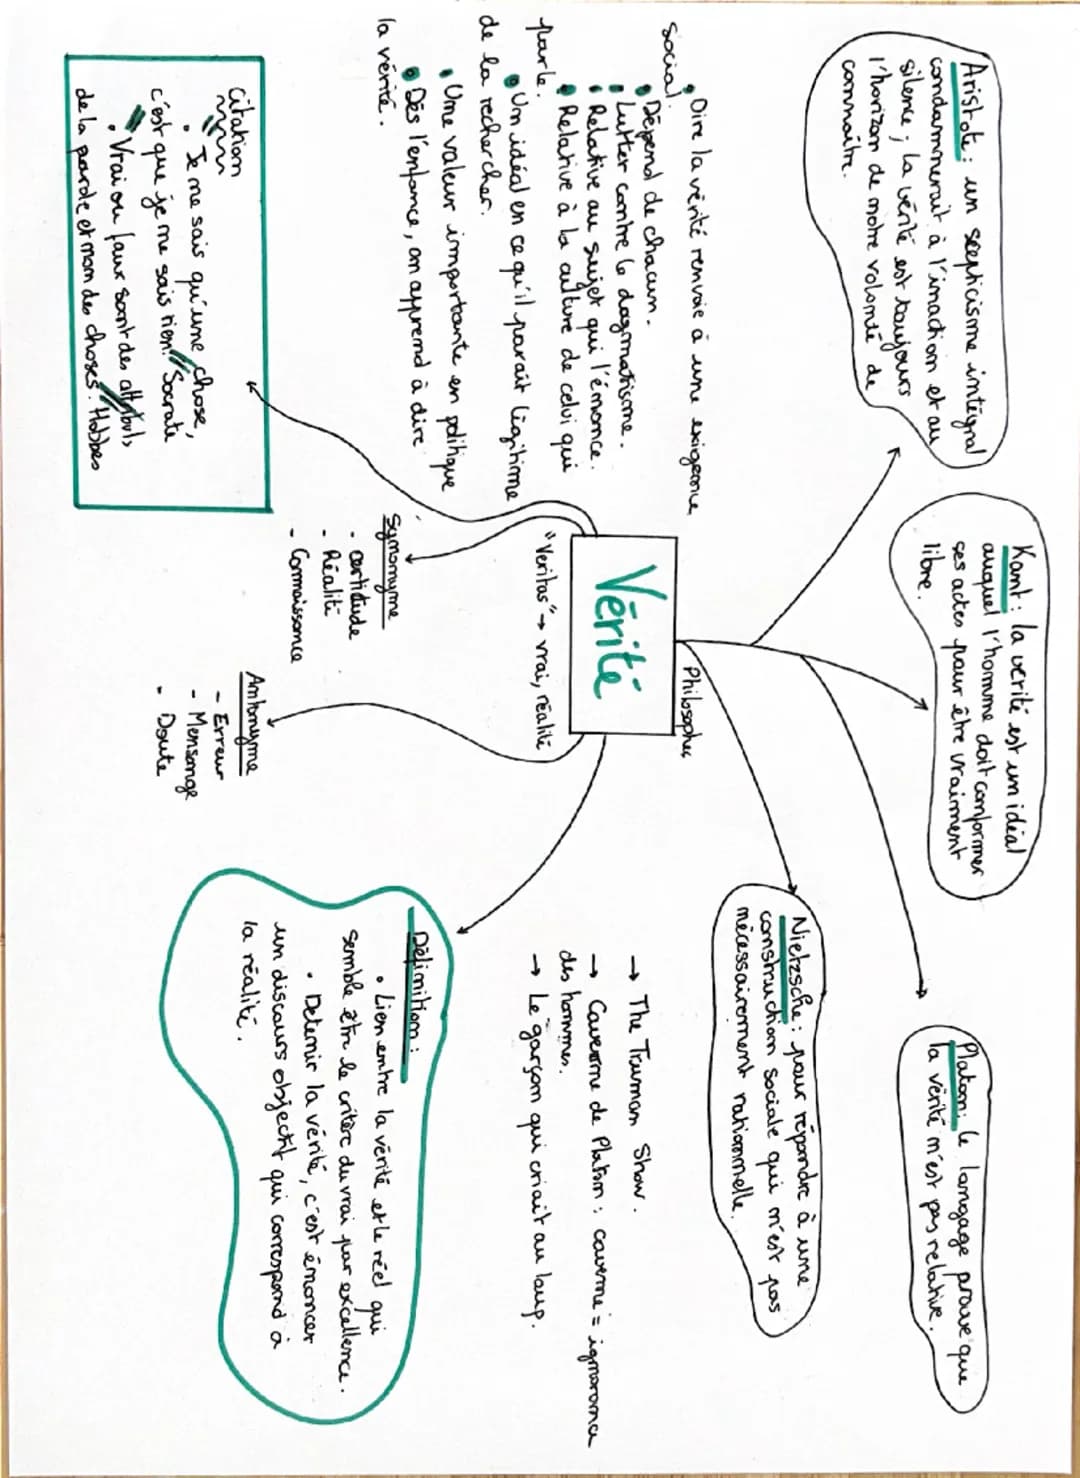 Aristote : un scepticisme intégral
condamnerait à l'inaction et au
silence ; la vérité est toujours
l'horizon de notre volonté de
connaître.
Kant : la verité est un idéal
auquel l'homme doit conformer
ses actes pour être vraiment
libre.
Platon : le langage prouve que
la vérité n'est pas relative.
Nietzsche : pour répondre à une
construction sociale qui n'est pas
nécessairement rationnelle.
Philosophes
Vérité
"Veritas" → vrai, réalité
• Dire la vérité renvoie à une exigence
social.
• Dépend de chacun.
• Lutter contre le dogmatisme.
• Relative au sujet qui l'énonce.
• Relative à la culture de celui qui
parle.
• Un idéal en ce qu'il parait légitime
de la rechercher.
• Une valeur importante en politique
• Dès l'enfance, on apprend à dire
la vérité.
→ The Truman Show.
→ Caverne de Platon : caverne = ignorance
des hommes.
→ Le garçon qui criait au loup.
Synonyme
- certitude
- Réalité
- Connaissance
Antonyme
- Erreur
- Mensonge
- Doute
Définition :
• Lien entre la vérité et le réel qui
semble être le critère du vrai par excellence.
• Detenir la vérité, c'est énoncer
un discours objectif qui correspond à
la réalité.
Citation
• "Je ne sais qu'une chose,
c'est que je ne sais rien." Socrate
• "Vrai ou faux sont des attributs
de la parole et non des choses." Hobbes